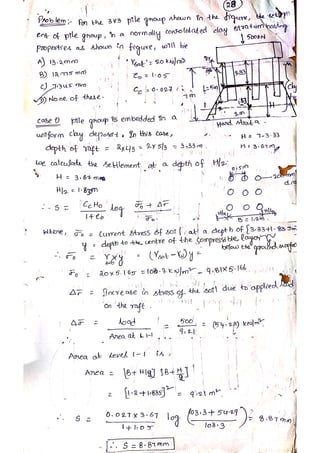 28
Problem:- For the 3x3 pile group shown in the figure, the settlem
ent of pile group, in a normally consolidated clay stratum having
properties as shown in figure, will be
500KN
A) 13.2mm
γsat = 20 kN/m³
B) 12.775 mm
e₀ = 1.05
C) 7.345 mm
Cc = 0.027
D) None of these.
L=5m
2m
Hard strata
case ① pile group is embedded in a
uniform clay deposit. In this case,
H = 7-3.33
depth of raft = 2xL/3 = 2x5/3 = 3.33m
H = 3.67m
we calculate the settlement at a depth of H/2.
H = 3.67 m
H/2 = 1.83m
B = 1.2m
∴ S = CcH₀/1+e₀ log σ̄₀ + Δσ̄/σ̄₀
where, σ̄₀ = current stress of soil at a depth of [3.33+1.83
y = depth to the centre of the compressible layer
below the ground surface
∴ σ̄₀ = γ x y = (γsat - γω) y =
σ̄₀ = 20x5.165 = 103.3 kN/m² - 9.81x5.166
Δσ̄ = Increase in stress of the soil due to applied load
on the raft.
Δσ̄ = load/Area at L1-1 = 500/9.21 = (54.29) kN/m²
Area at level 1-1 is,
Area = [B+H/2] [B+H/2]
= [1.2+1.835]² = 9.21 m²
∴ S = 0.027 x 3.67/1+1.05 log (103.3+54.29/103.3) = 8.87mm
∴ S = 8.87mm